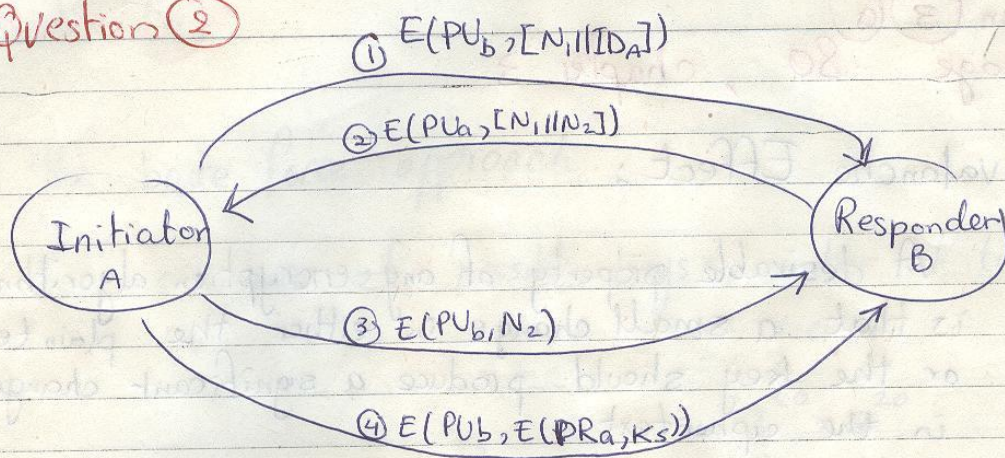 Question 2
① E(PUb, [N1||IDA])
② E(PUa, [N1||N2])
Initiator
A
Responder
B
③ E(PUb, N2)
④ E(PUb, E(PRa, Ks))